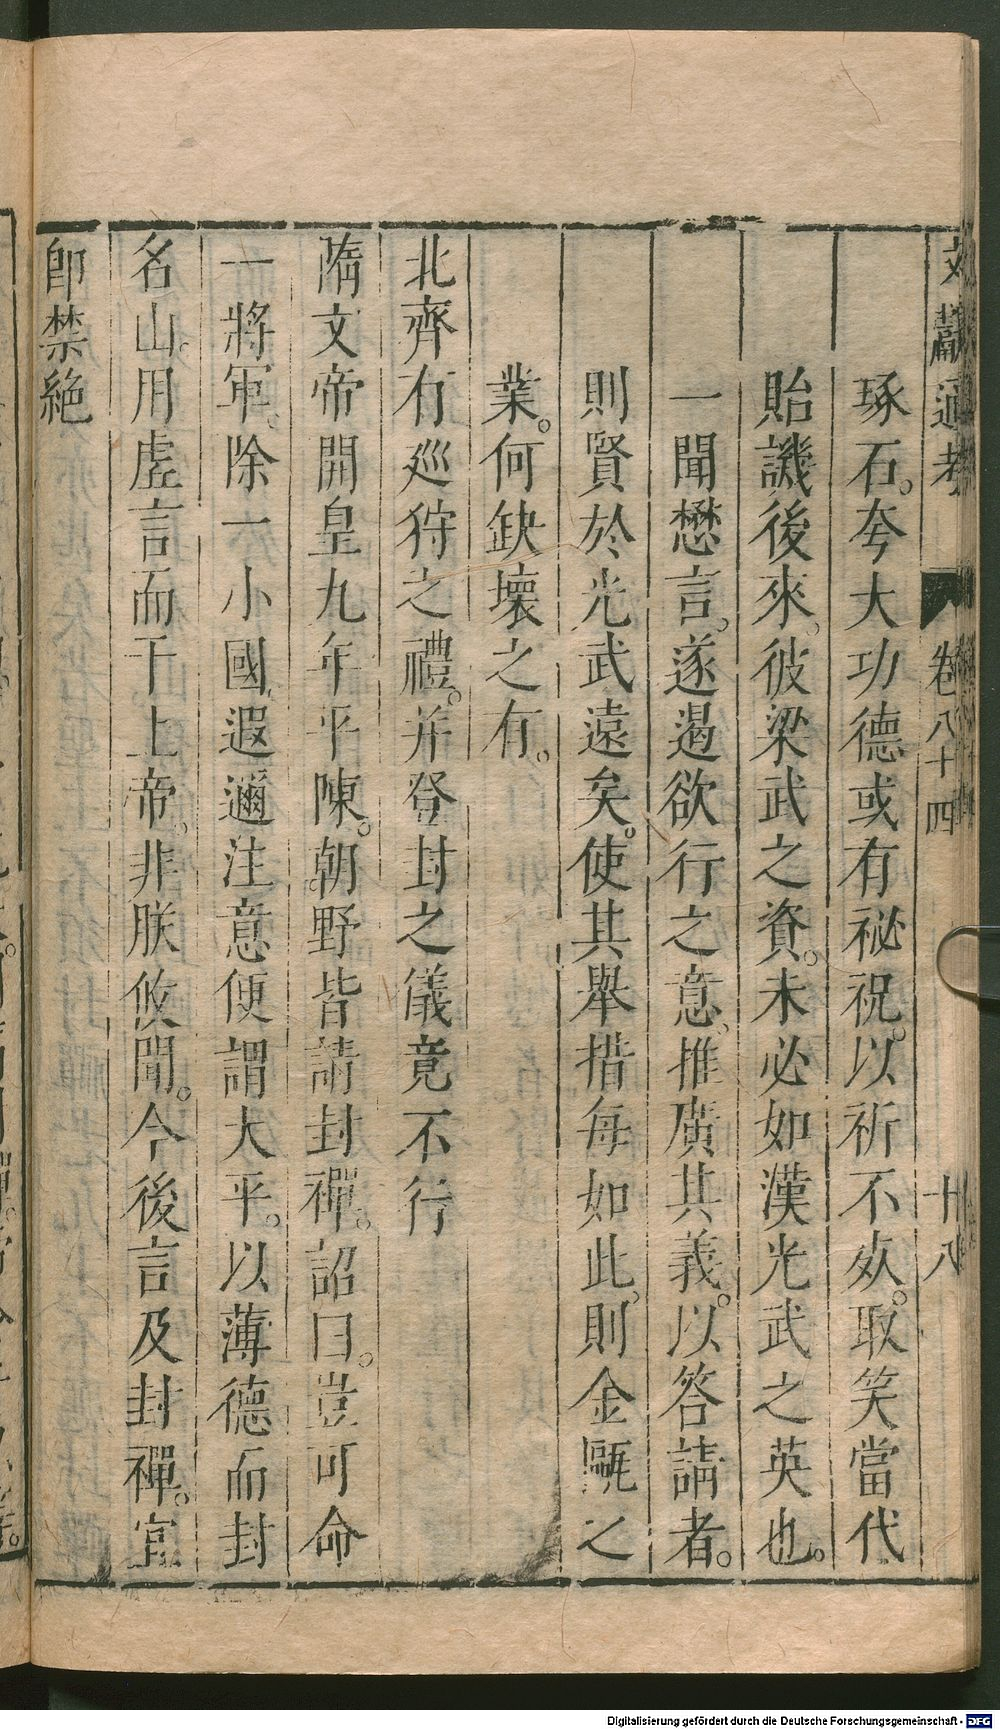 文獻通考 卷八十四 十八
琢石。夸大功德或有祕祝。以祈不㱱。取笑當代
貽譏後來。彼梁武之資。未必如漢光武之英也。
一聞懋言。遂遏欲行之意。推廣其義。以答請者。
則賢於光武遠矣。使其舉措每如此。則金甌之
業。何缺壞之有。
北齊有巡狩之禮。并登封之儀竟不行
隋文帝開皇九年平陳。朝野皆請封禪。詔曰。豈可命
一將軍。除一小國。遐邇注意便謂太平。以薄德而封
名山。用虛言而干上帝。非朕攸聞。今後言及封禪。宜
即禁絕
Digitalisierung gefördert durch die Deutsche Forschungsgemeinschaft - DFG